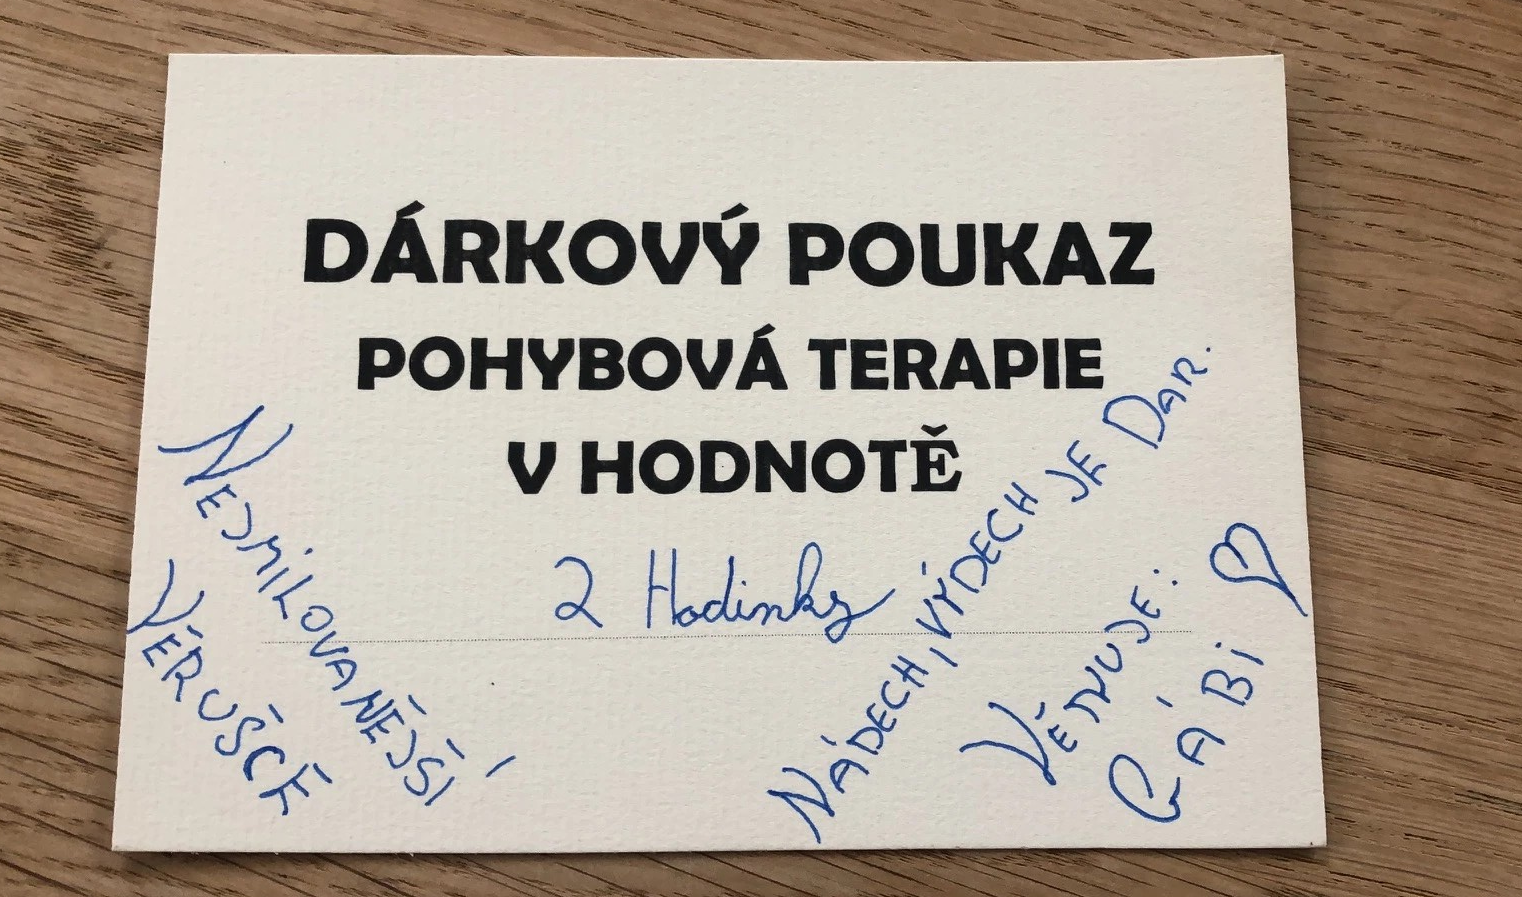 DÁRKOVÝ POUKAZ
POHYBOVÁ TERAPIE
V HODNOTĚ
2 Hodinky
NEJMILOVANĚJŠÍ
VĚRUŠCE
NÁDECH, VÝDECH JE DAR.
VĚNUJE:
GÁBI